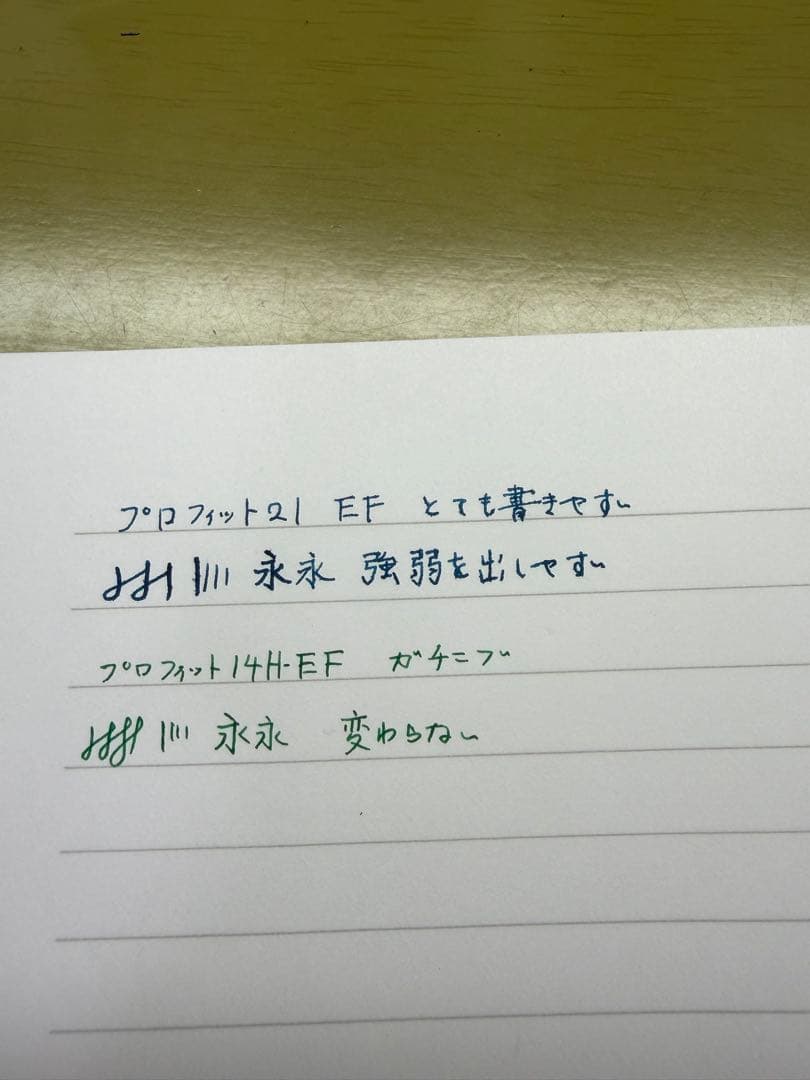 プロフィット21 EF とても書きやすい
永永 強弱を出しやすい
プロフィット14H-EF ガチニブ
永永 変わらない